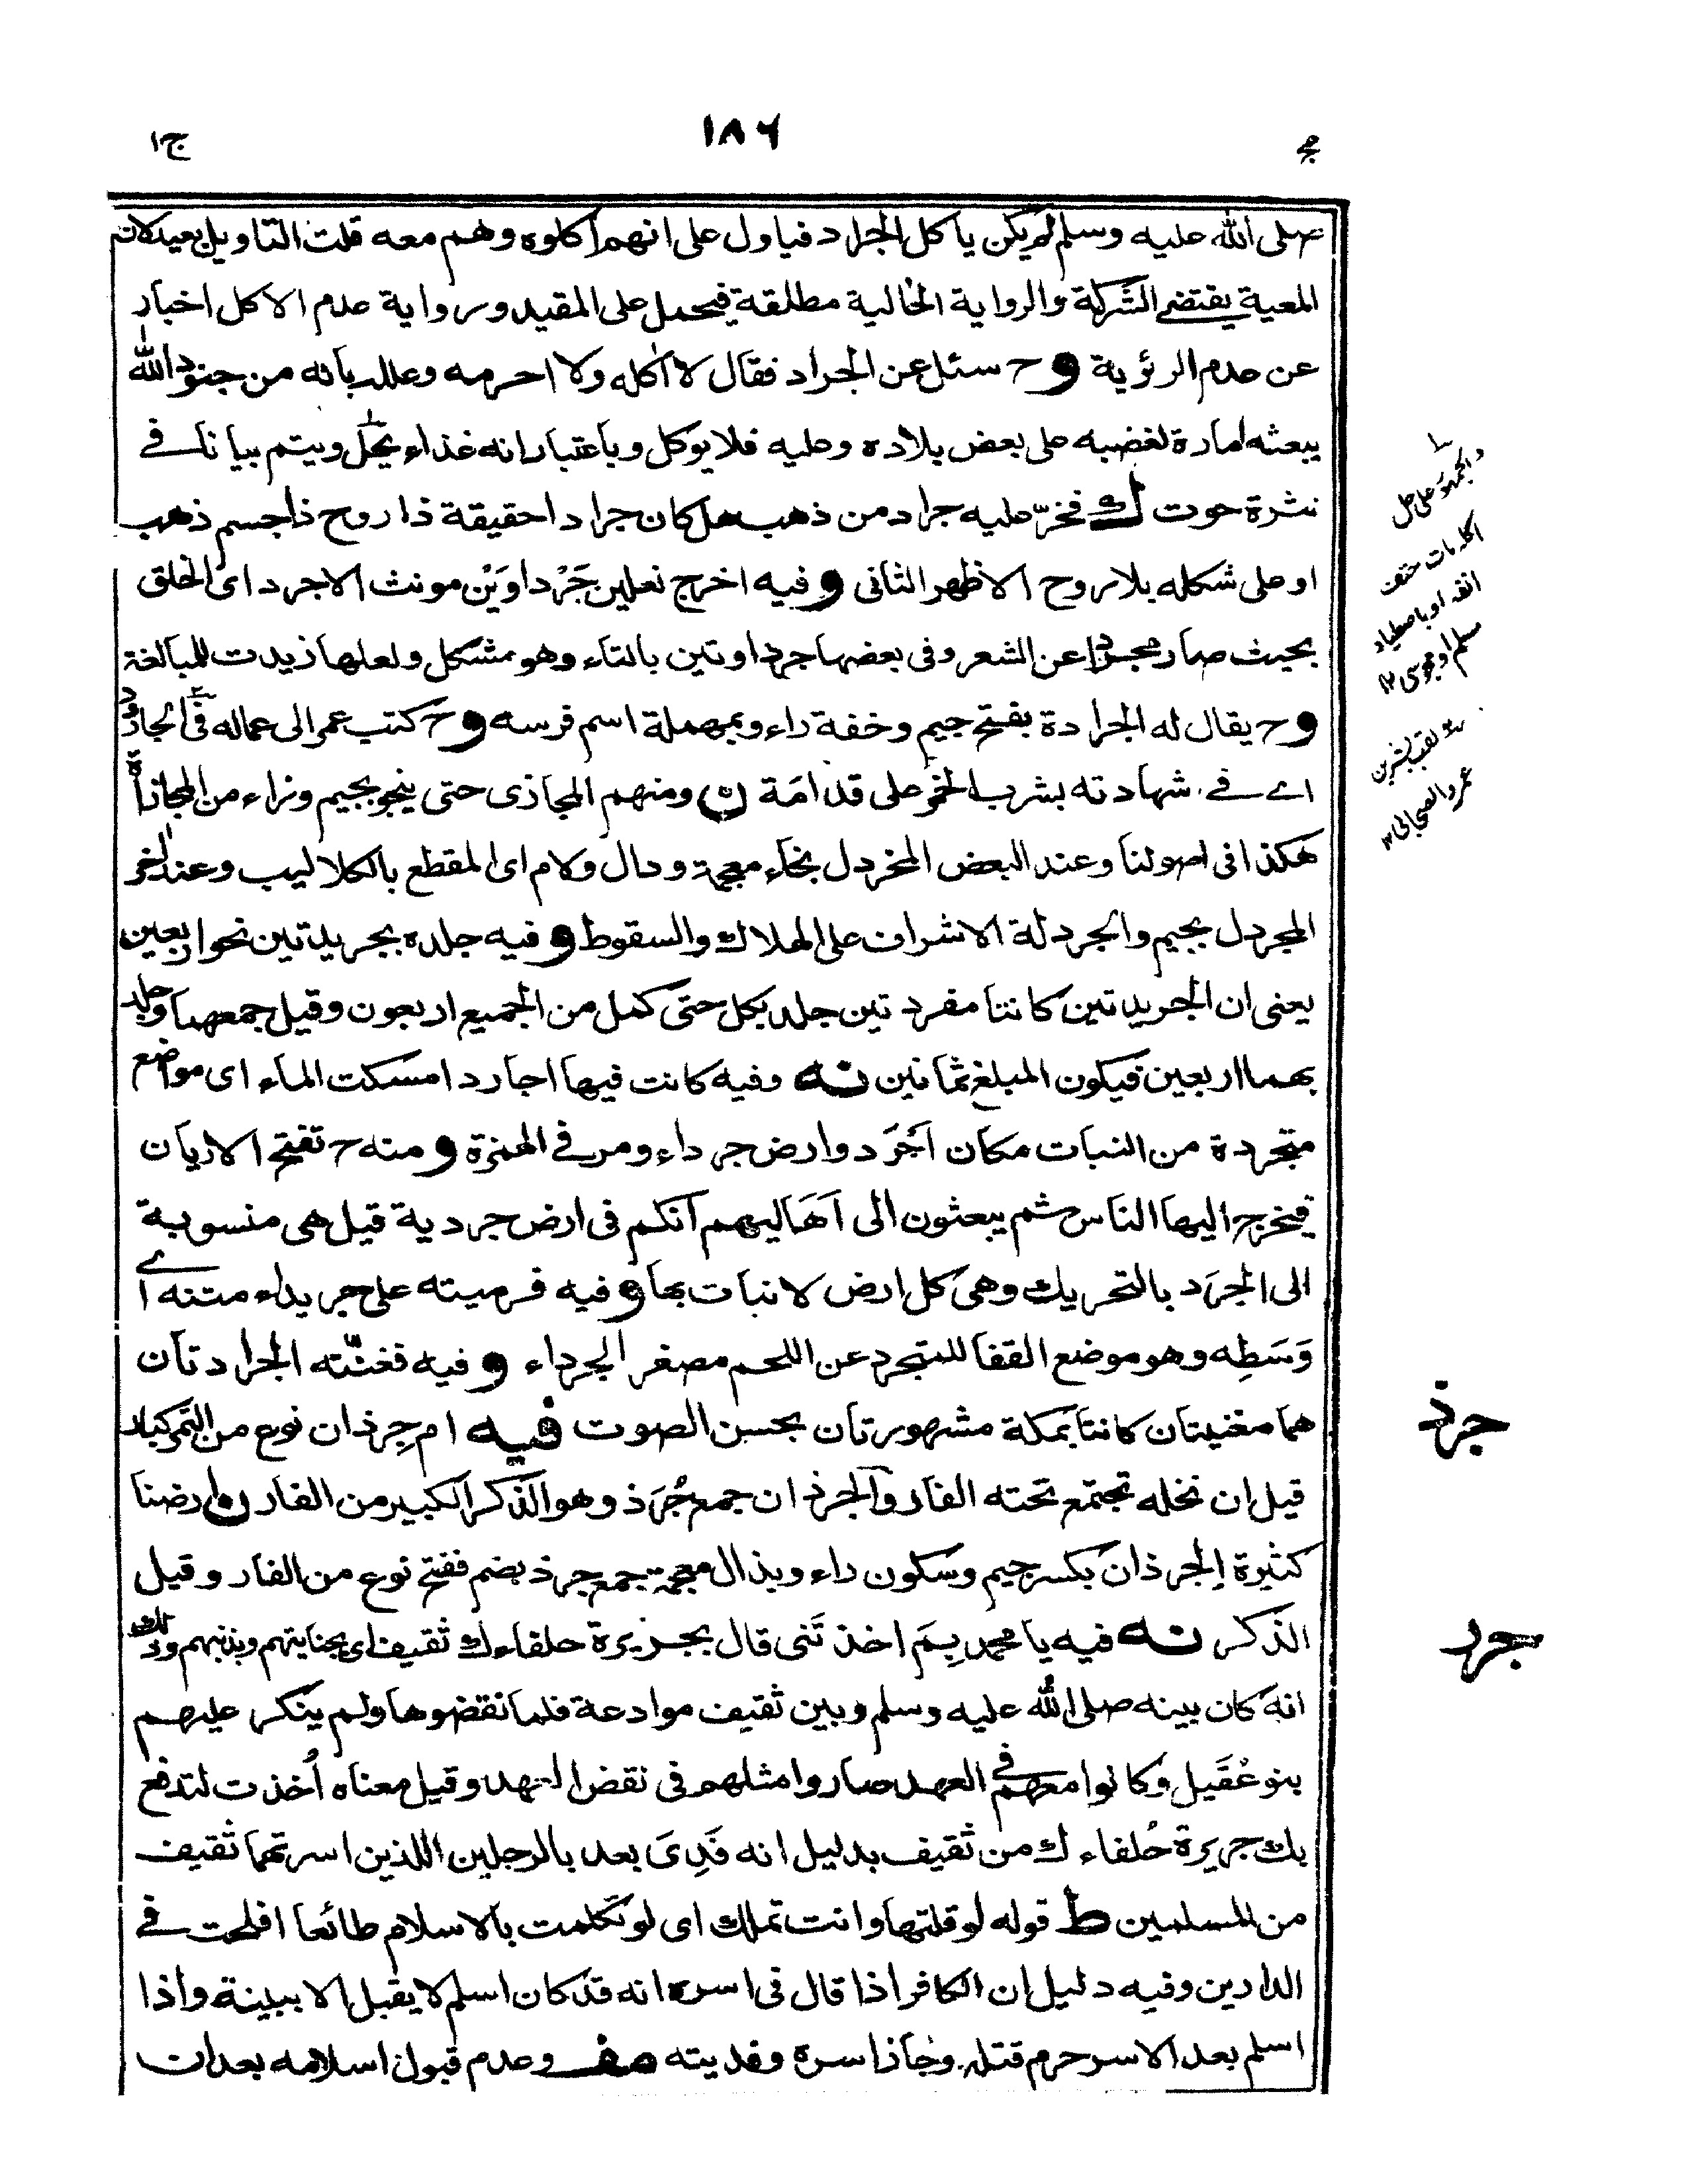 ج١
١٨٦
جر
صلى الله عليه وسلم لم يكن ياكل الجراد فياول على انهم اكلوه وهم معه قلت التاويل بعيد لان
المعية يقتضى الشركة والرواية الخالية مطلقة فيحمل على المقيد ورواية عدم الاكل اخبار
عن عدم الرؤية و ح سئل عن الجراد فقال لا اكله ولا احرمه وعلل بانه من جنود الله
يبعثه امارة لغضبه على بعض بلاده وعليه فلا يوكل وباعتبار انه غذاء يحل ويتم بيانا فى
نثرة حوت ك فخر عليه جراد من ذهب هل كان جرادا حقيقة ذا روح ذا جسم ذهب
او على شكله بلا روح الاظهر الثانى و فيه اخرج نعلين جَرْداوَيْن مونث الاجرد اى الخلق
بحيث صار مجردا عن الشعر وفى بعضها جرداوتين بالتاء وهو مشكل ولعلها زيدت للمبالغة
و ح يقال له الجرادة بفتح جيم وخفة راء وبمهملة اسم فرسه و ح كتب عمر الى عماله فى الجارود
اے فى شهادته بشرب الخمر على قدامة ن ومنهم المجازى حتى ينجو بجيم وزاء من المجازاة
هكذا فى اصولنا وعند البعض المخردل بخاء معجمة ودال ولام اى المقطع بالكلاليب وعند اخر
المجردل بجيم والجردلة الاشراف على الهلاك والسقوط و فيه جلده بجريدتين نحو اربعين
يعنى ان الجريدتين كانتا مفردتين جلد بكل حتى كمل من الجميع اربعون وقيل جمعهما وجلد
بهما اربعين فيكون المبلغ ثمانين نه وفيه كانت فيها اجارد امسكت الماء اى مواضع
متجردة من النبات مكان اَجْرَد وارض جرداء ومر فى الهمزة و منه ح تفتح الاريان
فيخرج اليها الناس ثم يبعثون الى اَهَاليهم انكم فى ارض جردية قيل هى منسوبة
الى الجرَد بالتحريك وهى كل ارض لا نبات بها و فيه فرميته على جريداء متنه اے
وَسَطِه وهو موضع القفا المتجرد عن اللحم مصغر الجرداء و فيه فغنّته الجرادتان
هما مغنيتان كانتا بمكة مشهورتان بحسن الصوت فيه ام جِرذان نوع من التمر كبار
قيل ان نخله تجتمع تحته الفار والجرذان جمع جُرَذ وهو الذكر الكبير من الفار ن ارضنا
كثيرة الجرذان بكسر جيم وسكون راء وبذال معجمة جمع جرذ بضم ففتح نوع من الفار وقيل
الذكر نه فيه يا محمد بِمَ اخذتَنى قال بجريرة حلفاءك ثقيف اى بجنايتهم وبذنبهم وذلك
انه كان بينه صلى الله عليه وسلم وبين ثقيف موادعة فلما نقضوها ولم ينكر عليهم
بنو عُقَيل وكانوا معهم فى العهد صاروا مثلهم فى نقض العهد وقيل معناه اُخذت لتدفع
بك جريرة حُلفاءك من ثقيف بدليل انه فَدِىَ بعد بالرجلين اللذين اسرتهما ثقيف
من المسلمين ط قوله لو قلتها وانت تملك اى لو تكلمت بالاسلام طائعا افلحت فى
الدارين وفيه دليل ان الكافر اذا قال فى اسره انه قد كان اسلم لا يقبل الا ببينة واذا
اسلم بعد الاسر حرم قتله وجاز اسره وفديته مف وعدم قبول اسلامه بعد ان
والجمهور على حل
اكله مات حتف
انفه او باصطياد
مسلم او مجوسى ١٢
لقب بشر بن
عمرو الصحابى ١٢
جرذ
جرر